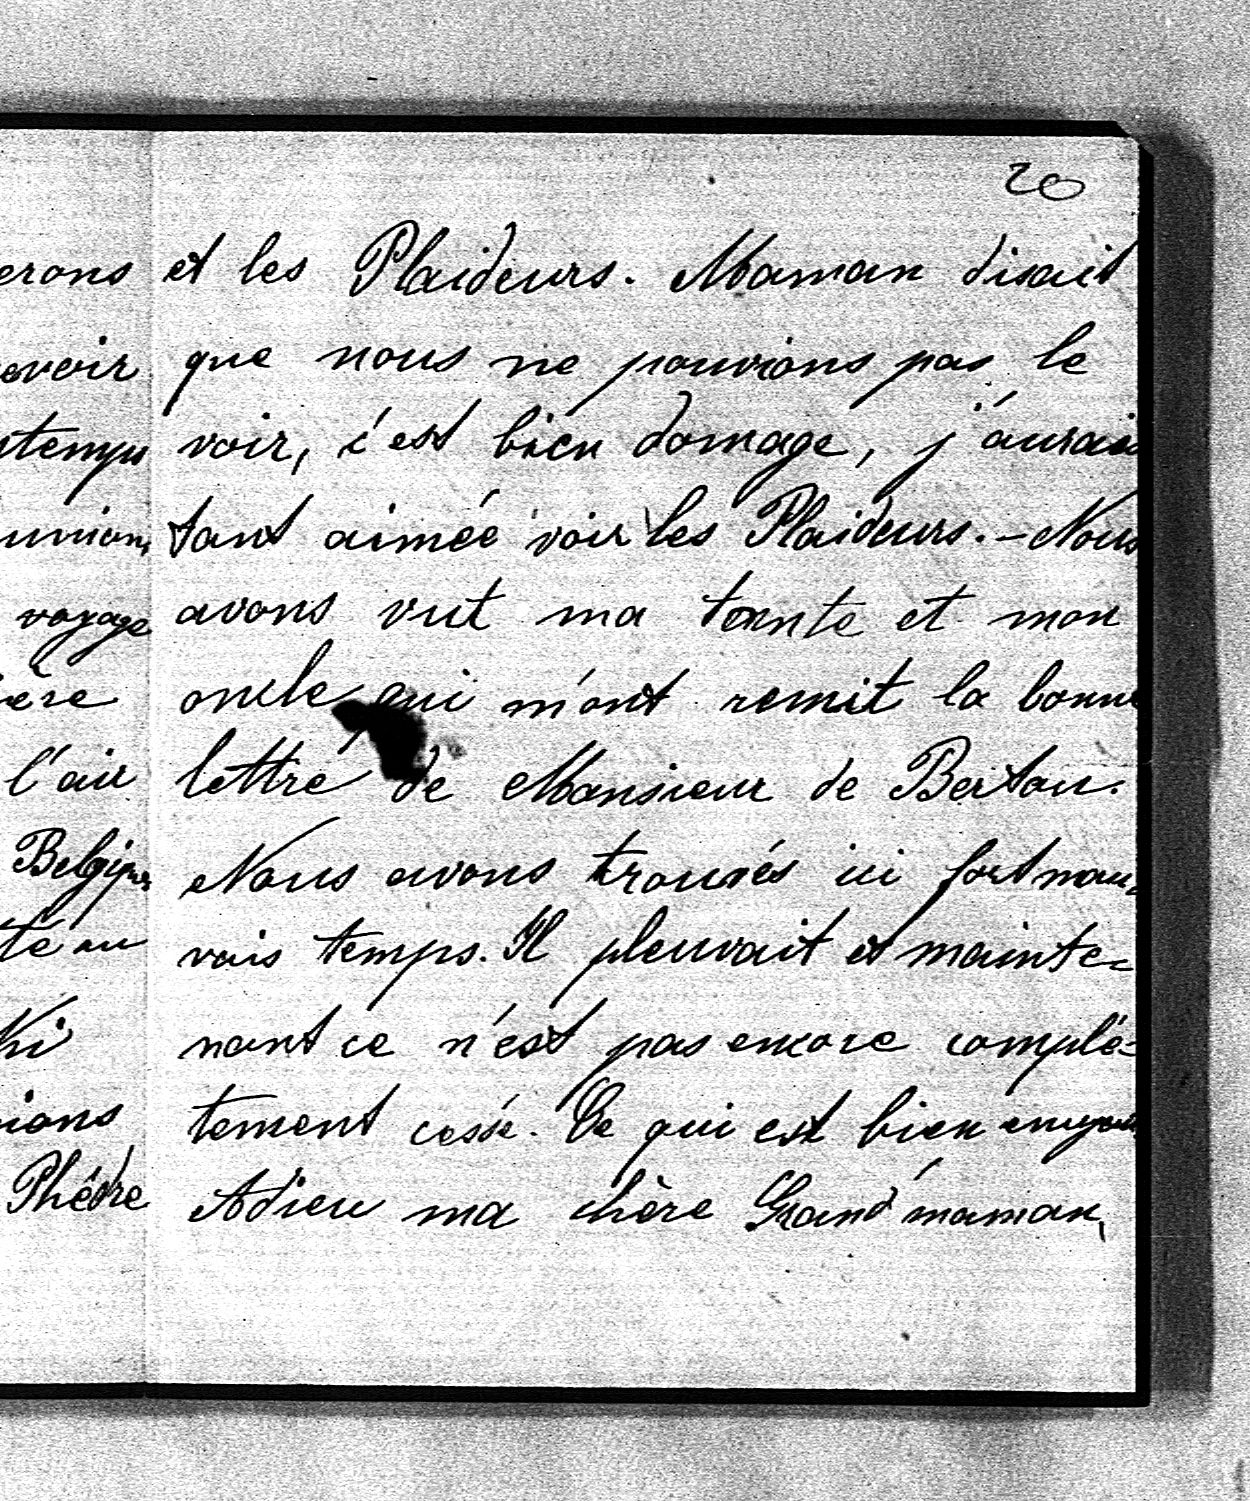 20
et les Plaideurs. Maman disait
que nous ne pouvions pas le
voir, c'est bien domage, j'aurais
tant aimée voir les Plaideurs. - Nous
avons vut ma tante et mon
oncle qui m'ont remit la bonne
lettre de Monsieur de Bertou.
Nous avons trouvés ici fort mau-
vais temps. Il pleuvait et mainte-
nant ce n'est pas encore complé-
tement cessé. Ce qui est bien
Adieu ma chère Grand'maman,
erons
evoir
temps
voyage
ère
l'air
Belgique
té au
ions
Phédre